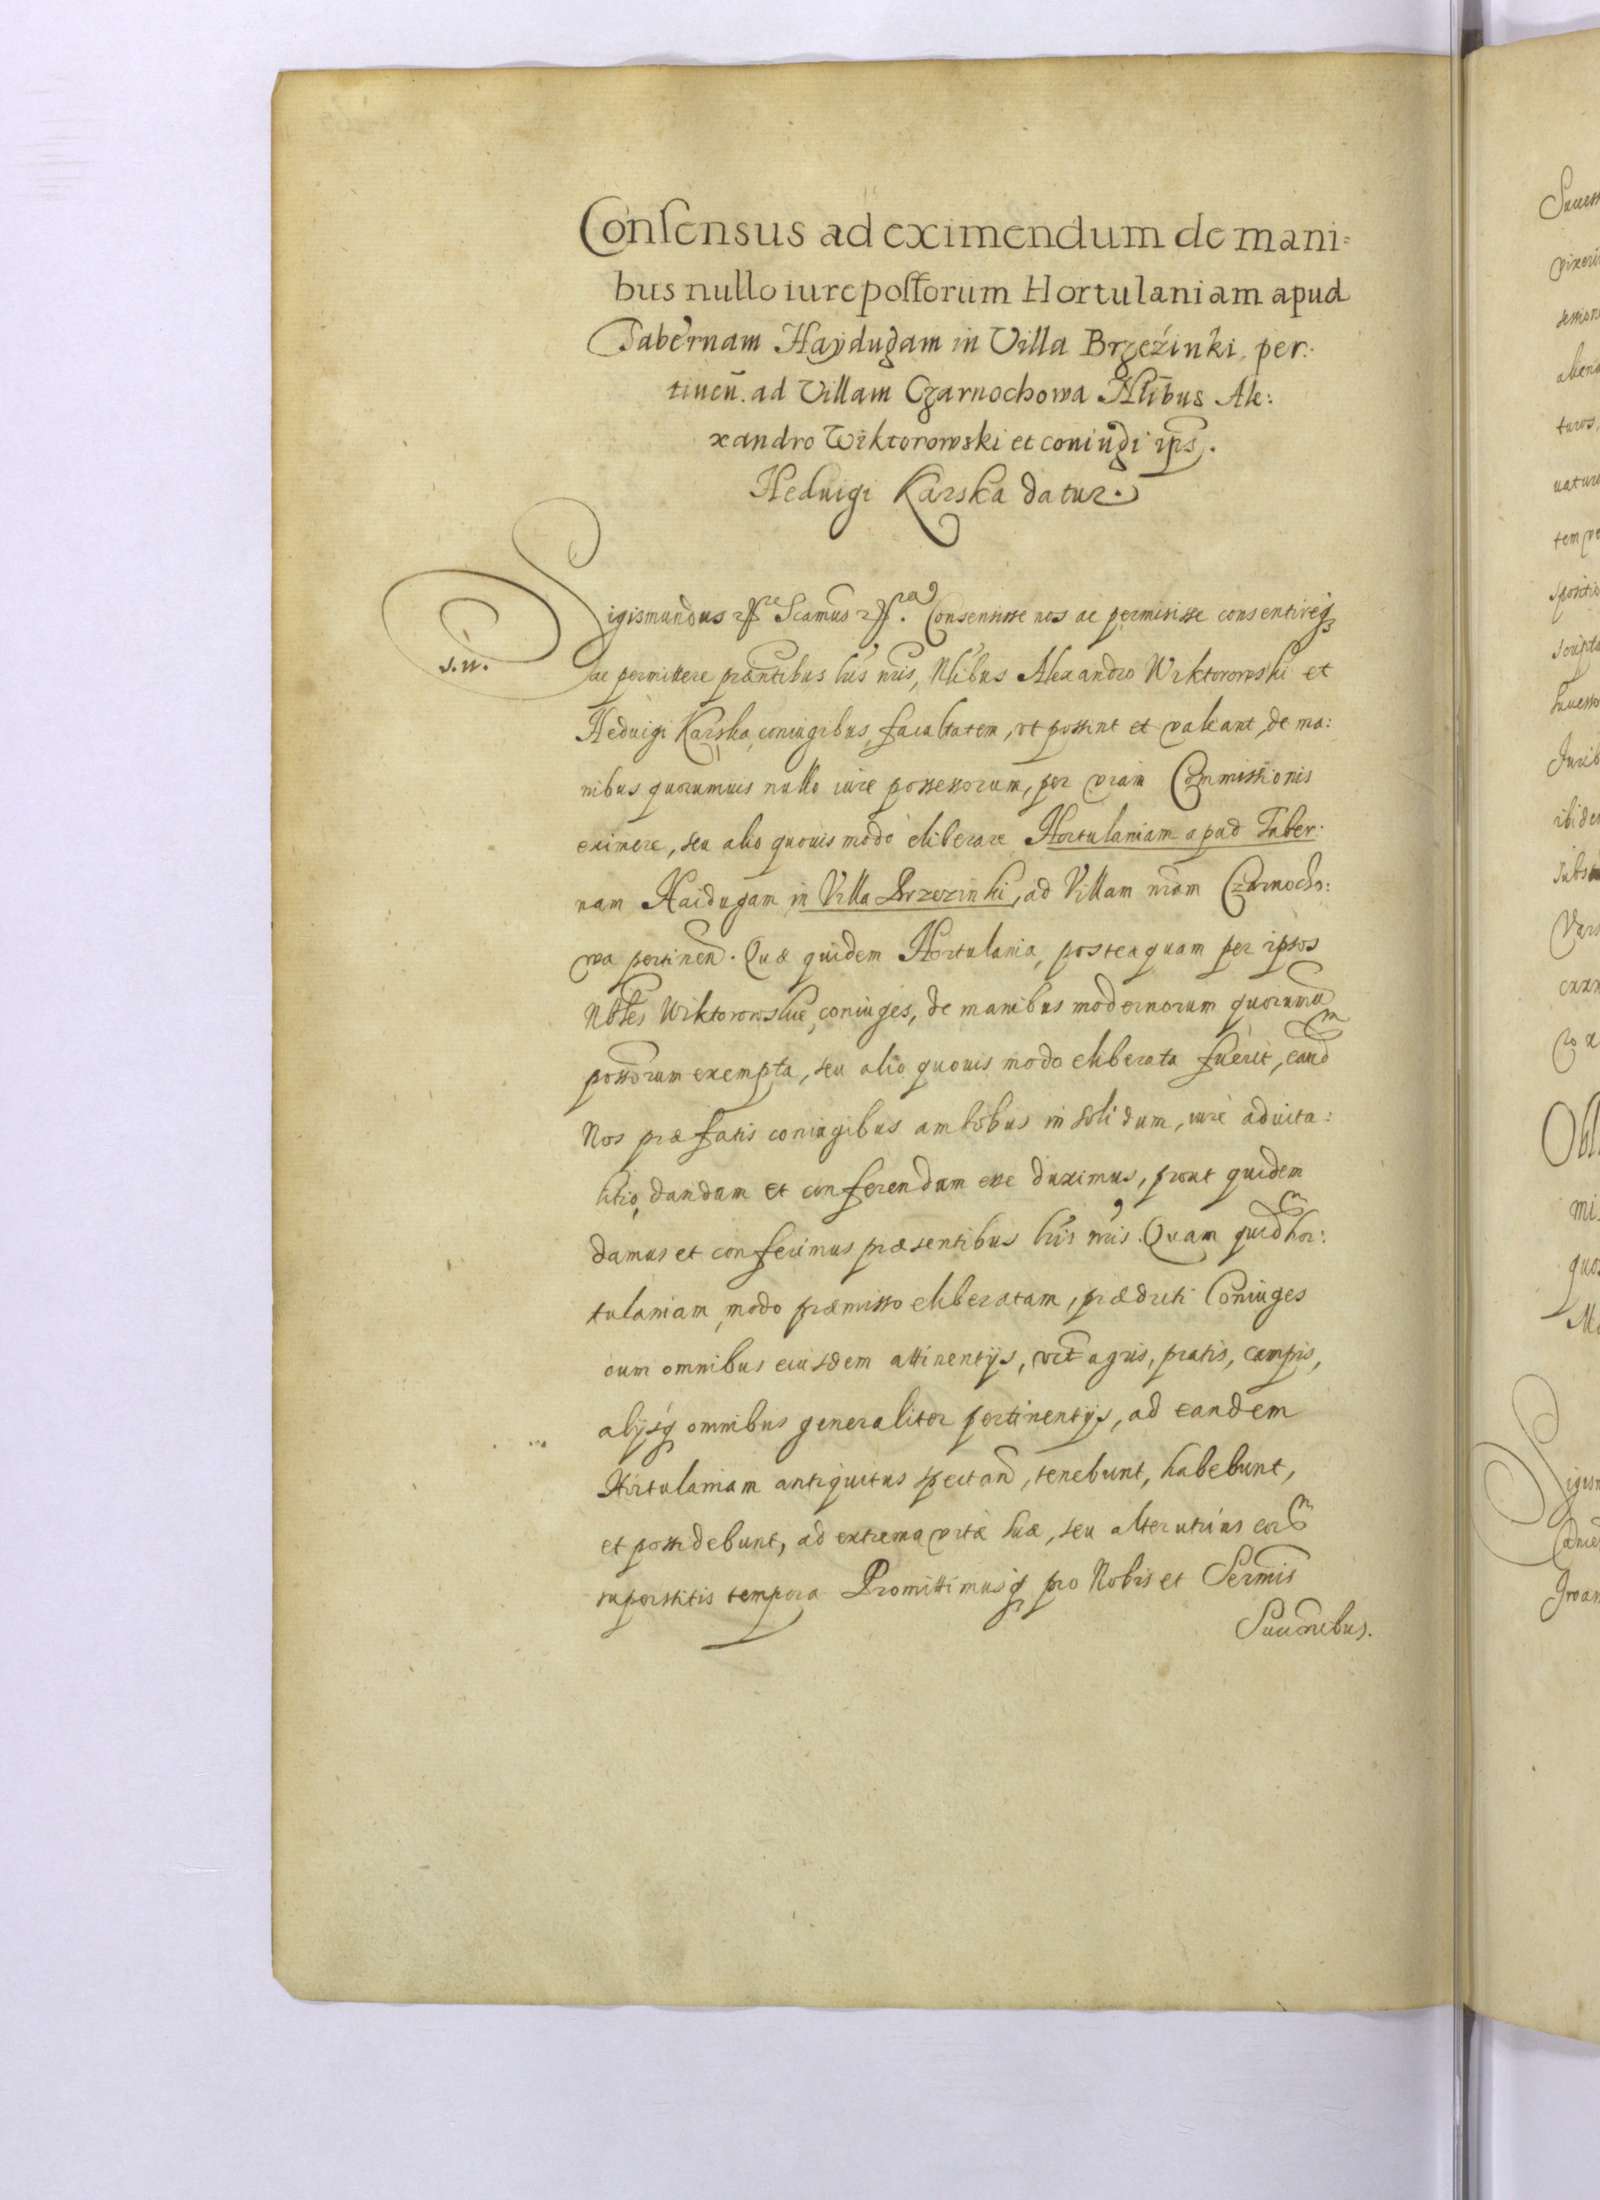 Consensus ad eximendum de mani=
bus nullo iure possorum Hortulaniam apud
Tabernam Haydugam in Villa Brzeźinki, per:
tineñ. ad Villam Czarnochowa Nlibus Ale:
xandro Wiktorowski et coniugi ips.
Heduigi Karska datur.
Sigismundus Scamus Consensisse nos ac permisisse consentireq
s.n.
ac permittere præntibus lris nris, Nlibus Alexandro Wiktorowski et
Heduigi Karska, coniugibus, facultatem, vt possint et valeant, de ma:
nibus quorumuis nullo iure possessorum, per viam Commissionis
eximere, seu alio quouis modo eliberare Hortulaniam apud Taber:
nam Haidugam in Villa Brzezinki, ad Villam nram Czarnocho:
wa pertinen. Quæ quidem Hortulania, posteaquam per ipsos
Nobles Wiktorowskie, coniuges, de manibus modernorum quorumu
possorum exempta, seu alio quouis modo eliberata fuerit, eand
Nos præfatis coniugibus ambobus in solidum, iure aduita:
litio, dandam et conferendam esse duximus, prout quidem
damus et conferimus præsentibus lris nris. Quam quid hor:
tulaniam, modo præmisso eliberatam, prædicti Coniuges
cum omnibus eiusdem attinentijs, vict agris, pratis, campis,
alijsq omnibus generaliter pertinentijs, ad eandem
Hortulaniam antiquitus spectan, tenebunt, habebunt,
et possidebunt, ad extrema vitæ suæ, seu alterutrius eor
superstitis tempora Promittimusq pro Nobis et Sermis
Succoribus.